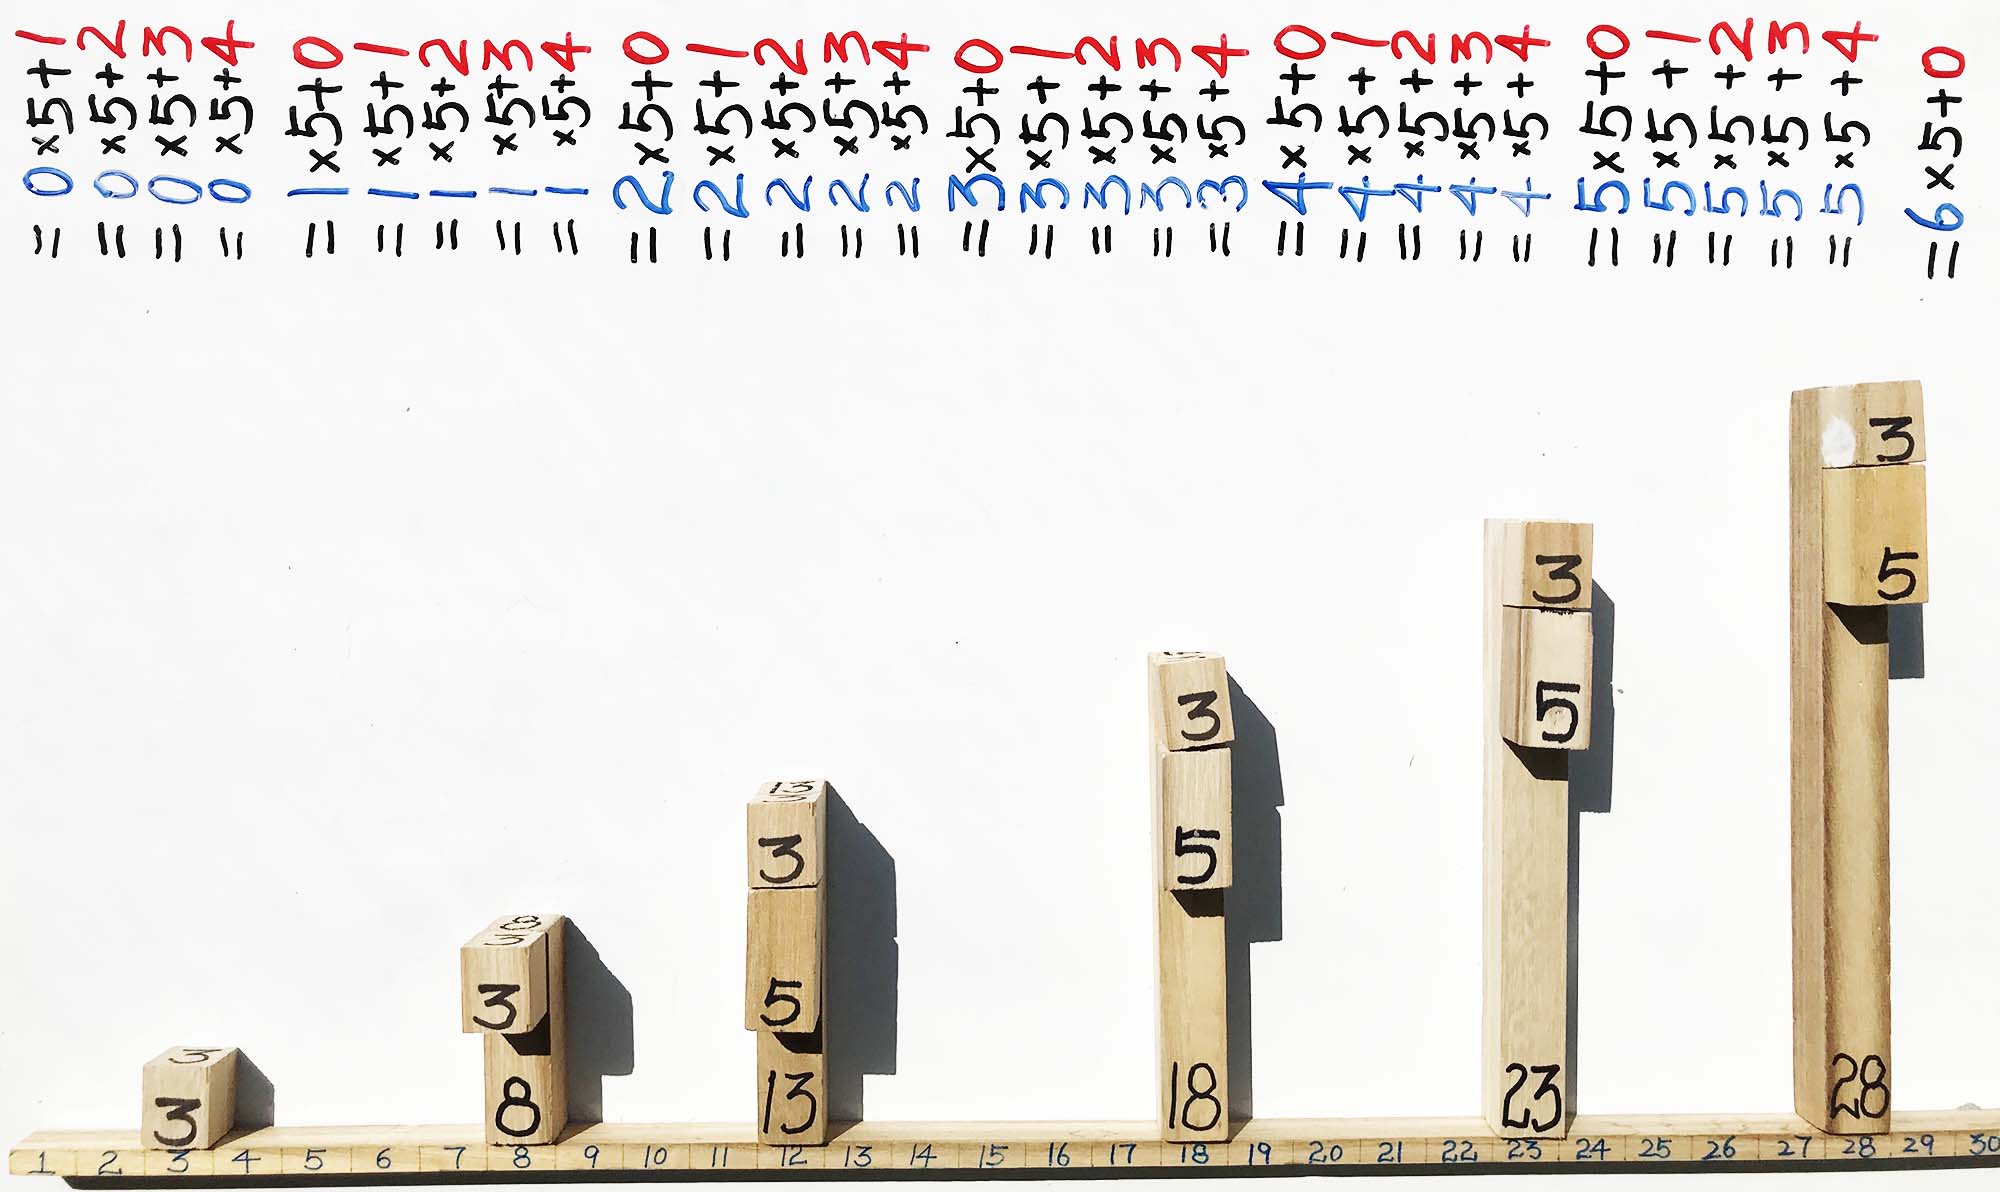 =0×5+1
=0×5+2
=0×5+3
=0×5+4
=1×5+0
=1×5+1
=1×5+2
=1×5+3
=1×5+4
=2×5+0
=2×5+1
=2×5+2
=2×5+3
=2×5+4
=3×5+0
=3×5+1
=3×5+2
=3×5+3
=3×5+4
=4×5+0
=4×5+1
=4×5+2
=4×5+3
=4×5+4
=5×5+0
=5×5+1
=5×5+2
=5×5+3
=5×5+4
=6×5+0
3
3
8
3
3
8
13
3
3
5
13
3
5
18
3
5
23
3
5
28
1 2 3 4 5 6 7 8 9 10 11 12 13 14 15 16 17 18 19 20 21 22 23 24 25 26 27 28 29 30